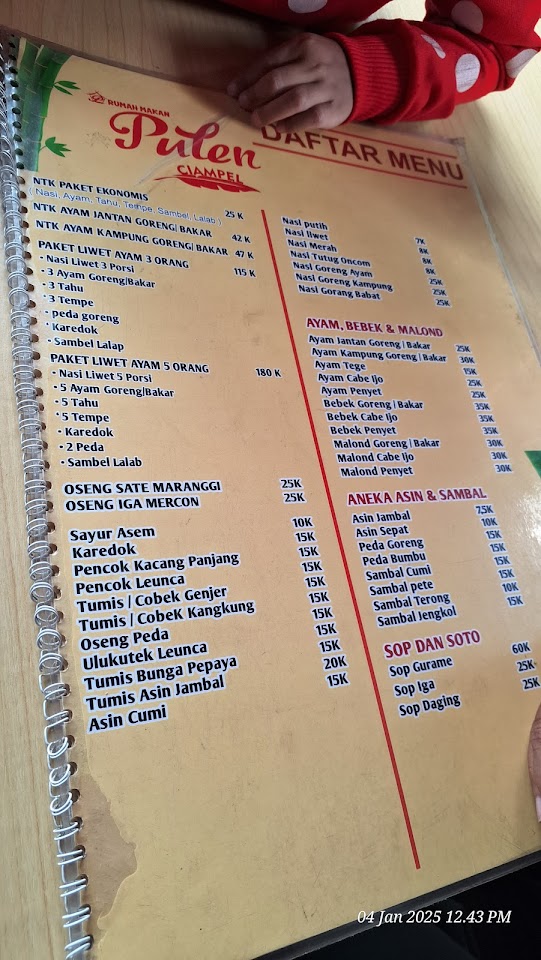 RUMAH MAKAN
Pulen
CIAMPEL
DAFTAR MENU
NTK PAKET EKONOMIS 25 K
( Nasi, Ayam, Tahu, Tempe, Sambel, Lalab )
NTK AYAM JANTAN GORENG/ BAKAR 42 K
NTK AYAM KAMPUNG GORENG/ BAKAR 47 K
PAKET LIWET AYAM 3 ORANG 115 K
• Nasi Liwet 3 Porsi
• 3 Ayam Goreng/Bakar
• 3 Tahu
• 3 Tempe
• peda goreng
• Karedok
• Sambel Lalap
PAKET LIWET AYAM 5 ORANG 180 K
• Nasi Liwet 5 Porsi
• 5 Ayam Goreng/Bakar
• 5 Tahu
• 5 Tempe
• Karedok
• 2 Peda
• Sambel Lalab
OSENG SATE MARANGGI 25K
OSENG IGA MERCON 25K
Sayur Asem 10K
Karedok 15K
Pencok Kacang Panjang 15K
Pencok Leunca 15K
Tumis / Cobek Genjer 15K
Tumis / Cobek Kangkung 15K
Oseng Peda 15K
Ulukutek Leunca 15K
Tumis Bunga Pepaya 15K
Tumis Asin Jambal 20K
Asin Cumi 15K
Nasi putih 7K
Nasi liwet 8K
Nasi Merah 8K
Nasi Tutug Oncom 8K
Nasi Goreng Ayam 25K
Nasi Goreng Kampung 25K
Nasi Gorang Babat 25K
AYAM, BEBEK & MALOND
Ayam Jantan Goreng / Bakar 25K
Ayam Kampung Goreng / Bakar 30K
Ayam Tege 15K
Ayam Cabe Ijo 25K
Ayam Penyet 25K
Bebek Goreng / Bakar 35K
Bebek Cabe Ijo 35K
Bebek Penyet 35K
Malond Goreng / Bakar 30K
Malond Cabe Ijo 30K
Malond Penyet 30K
ANEKA ASIN & SAMBAL
Asin Jambal 7,5K
Asin Sepat 10K
Peda Goreng 15K
Peda Bumbu 15K
Sambal Cumi 15K
Sambal pete 15K
Sambal Terong 10K
Sambal Jengkol 15K
SOP DAN SOTO
Sop Gurame 60K
Sop Iga 25K
Sop Daging 25K
04 Jan 2025 12.43 PM